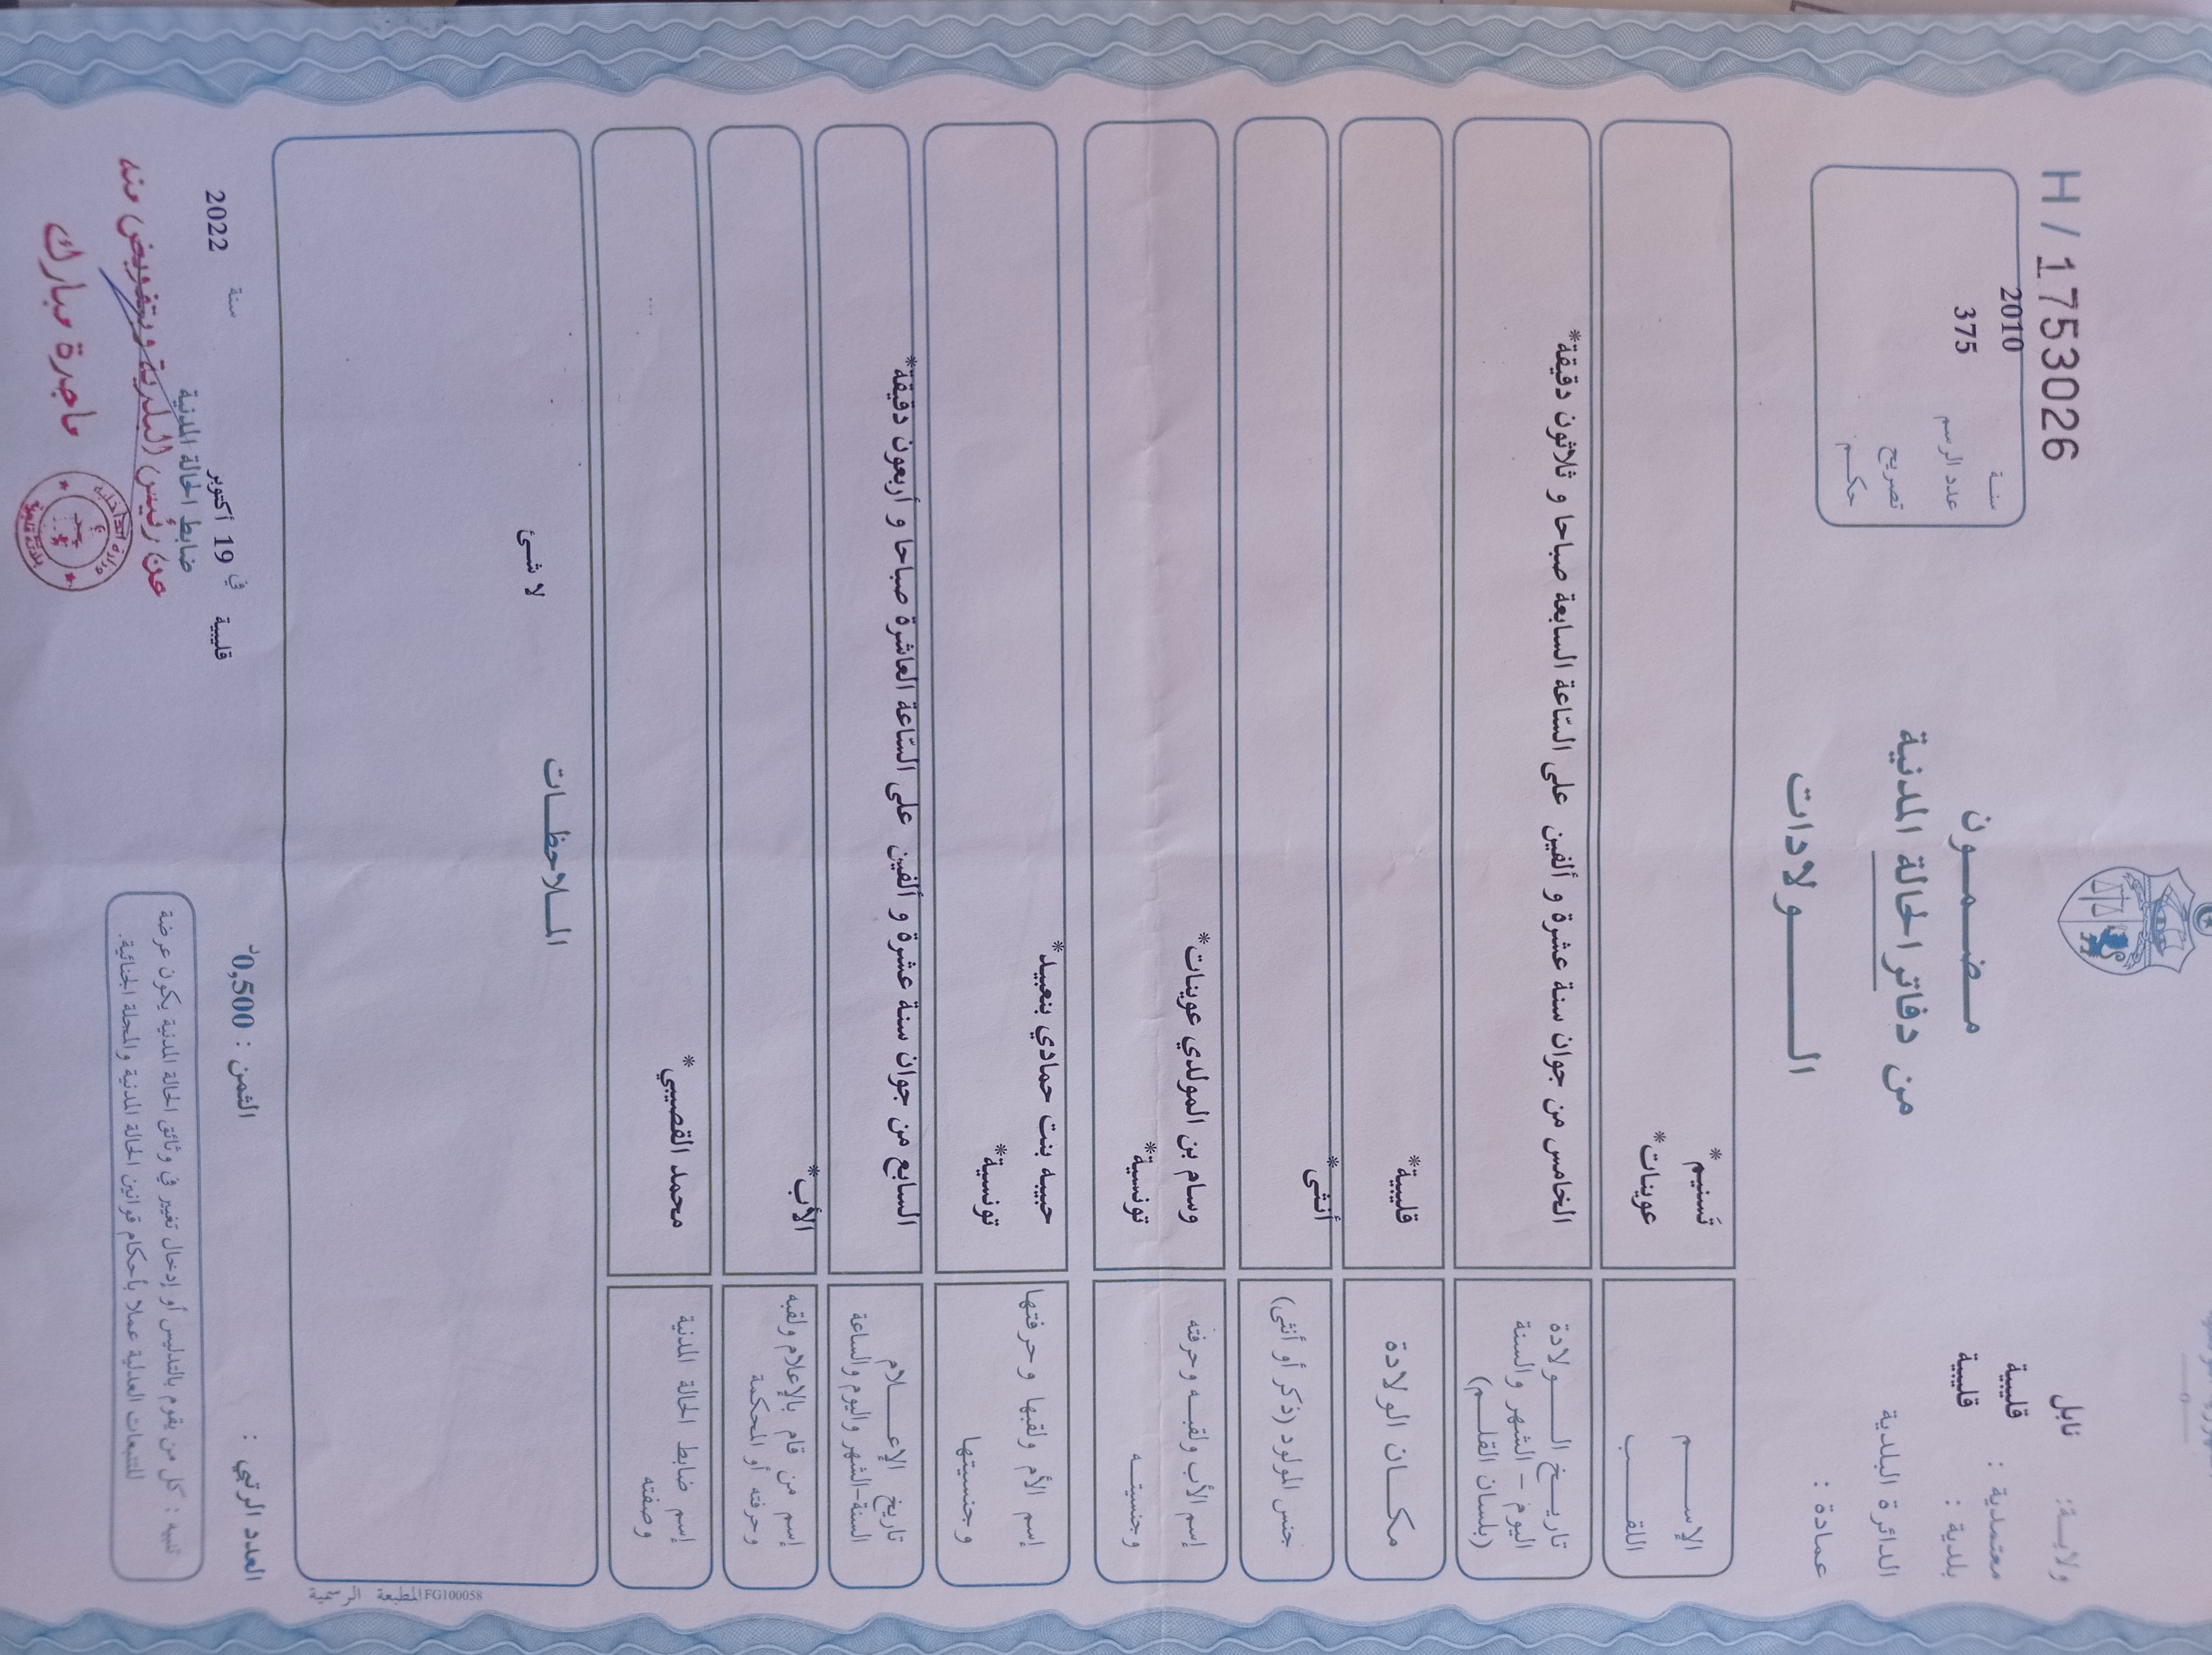 ولايـة: نابل
معتمدية : قليبية
بلدية : قليبية
الدائرة البلدية
عمادة :
H / 1753026
سنـة 2010
عدد الرسم 375
تصريح
حكـم
مـضـمـون
من دفاتر الحالة المدنية
الـــولادات
الإســـم تَسنيم*
اللقـــب عوينات*
تاريـخ الـــولادة
اليوم – الشهر والسنة
(بلسان القلـم)
الخامس من جوان سنة عشرة و ألفين على السّاعة السابعة صباحا و ثلاثون دقيقة*
مكـــان الولادة قليبية*
جنس المولود (ذكر أو أنثى) أنثى*
إسم الأب ولقبـه وحرفته وسام بن المولدي عوينات*
وجنسيتـه تونسية*
إسم الأم ولقبها وحرفتها حبيبه بنت حمادي بنعبيد*
وجنسيتها تونسية*
تاريخ الإعـــلام
السنة-الشهر واليوم والساعة
السابع من جوان سنة عشرة و ألفين على السّاعة العاشرة صباحا و أربعون دقيقة*
إسم من قام بالإعلام ولقبه
وحرفته أو المحكمة
الأب*
إسم ضابط الحالة المدنية
وصفته
محمد القصيبي*
المـلاحظـات
لا شـئ
المطبعة الرسمية FG100058
العدد الرتبي :
الثمن : 0,500د
قليبية في 19 أكتوبر سنة 2022
ضابط الحالة المدنية
عن رئيس البلدية وبتفويض منه
ماجدة مبارك
تنبيه : كل من يقوم بالتدليس أو إدخال تغيير في وثائق الحالة المدنية يكون عرضة
للتتبعات العدلية عملا بأحكام قوانين الحالة المدنية والمجلة الجنائية.